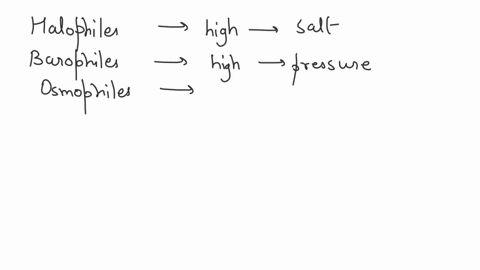 Halophiles → high → salt
Barophiles → high → pressure
Osmophiles →